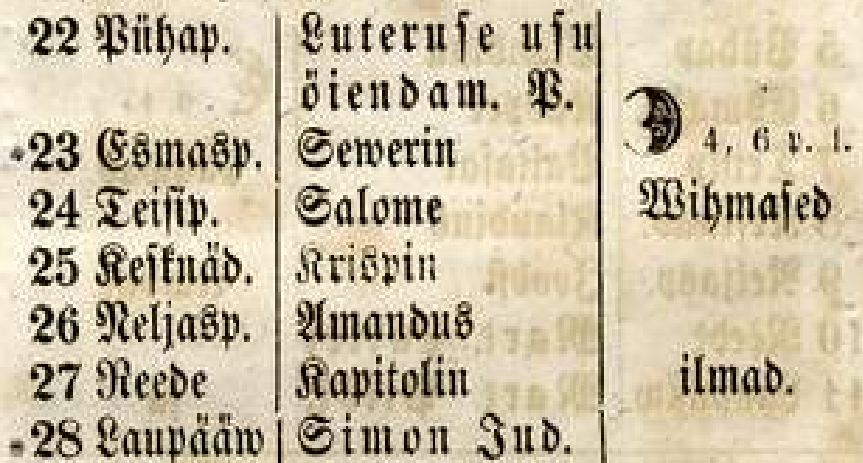 22 Pühap. Luteruse usu
öiendam. P.
23 Esmasp. Sewerin 4, 6 p. l.
24 Teisip. Salome Wihmased
25 Keſknäd. Krispin
26 Neljasp. Amandus
27 Reede Kapitolin ilmad.
28 Laupääw Simon Jud.